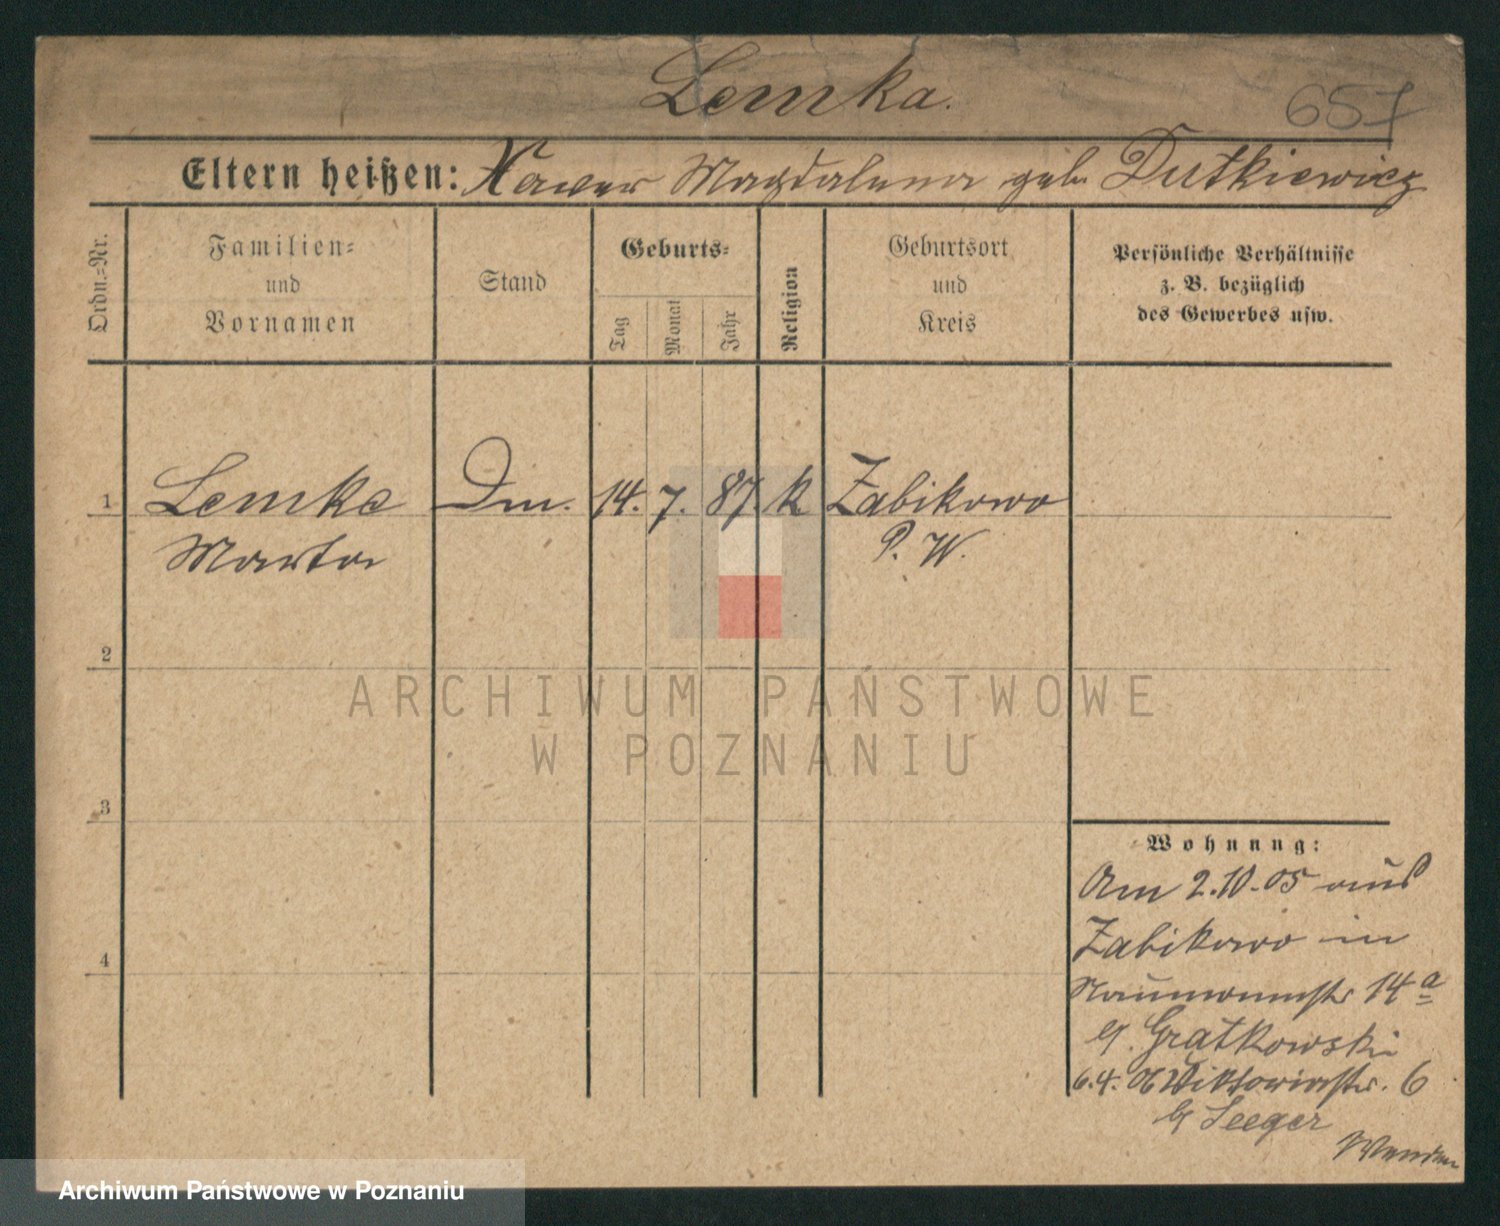 Lemka.
657
Eltern heißen: Xaver Magdalena geb. Dutkiewicz
Ordn.=Nr.
Familien=
und
Vornamen
Stand
Geburts=
Tag
Monat
Jahr
Religion
Geburtsort
und
Kreis
Persönliche Verhältnisse
z. B. bezüglich
des Gewerbes usw.
1
Lemke Dm. 14. 7. 87. k Zabikowo
Marta P. W.
2
3
4
Wohnung:
Am 2.10.05 aus
Zabikowo in
Naumannstr 14a
b/. Gratkowski
6.4. 06 Viktoriastr. 6
b/ Seeger
Wenden
ARCHIWUM PAŃSTWOWE
W POZNANIU
Archiwum Państwowe w Poznaniu